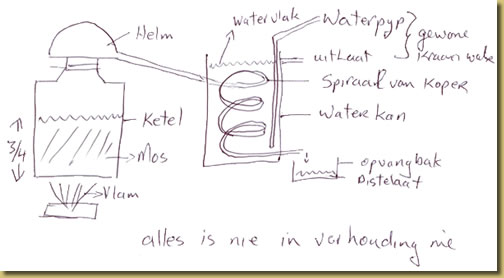 Helm
watervlak
Waterpyp
gewone
kraan water
uitlaat
Spiraal van Koper
Ketel
Water kan
3/4
Mos
opvangbak
Distelaat
Vlam
alles is nie in verhouding nie